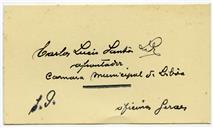 Carlos Lucio Santos
apontador
Camara Municipal de Lisboa
S. J.
oficinas Geraes